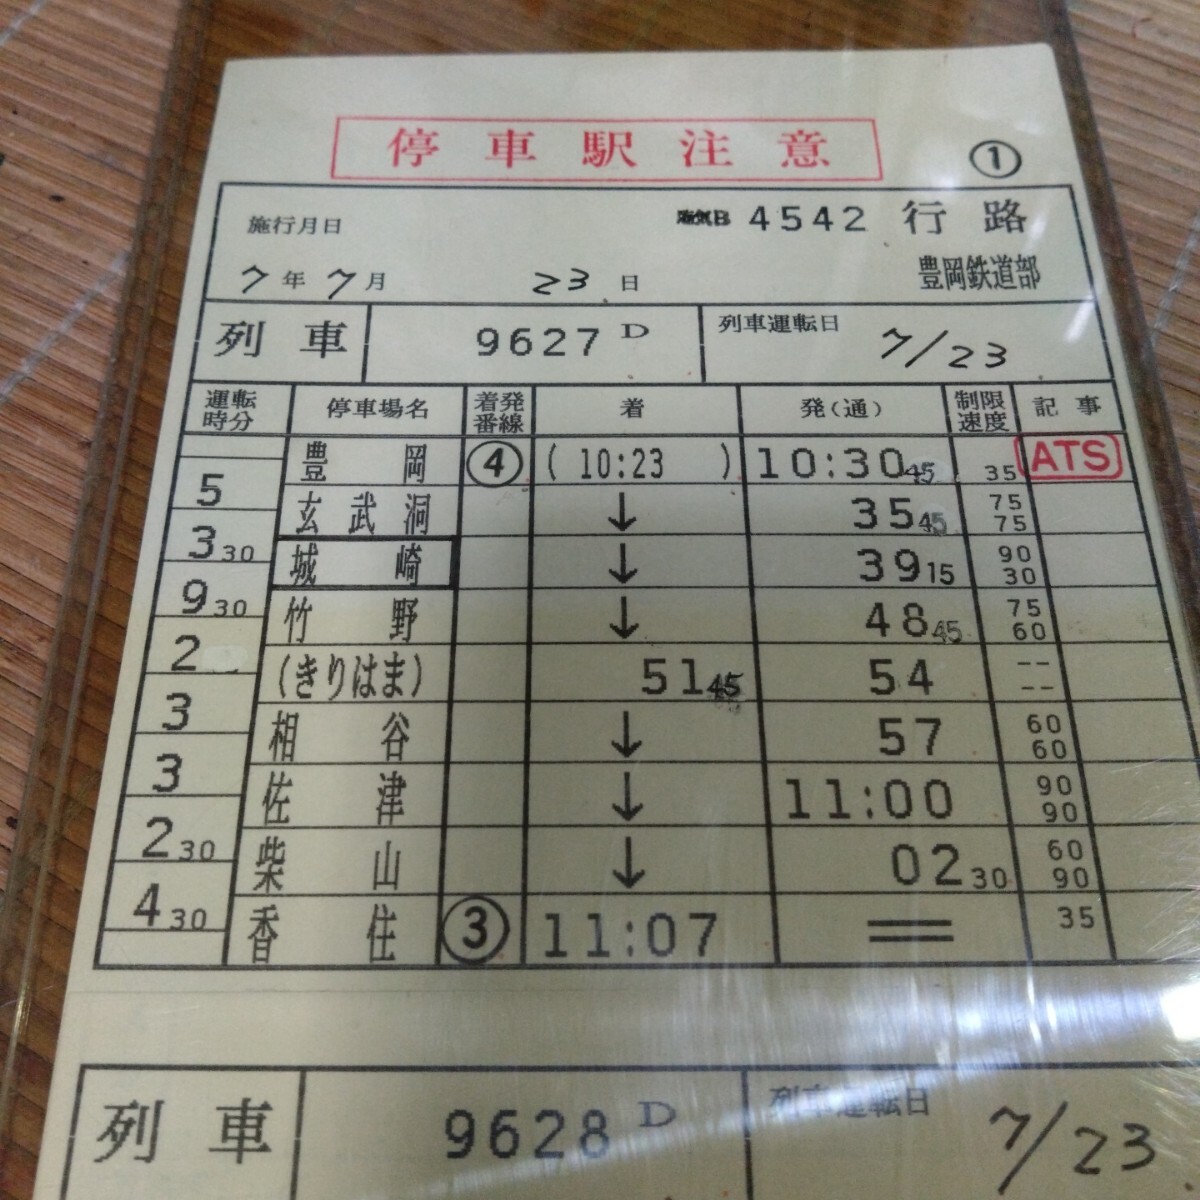 停車駅注意 ①
施行月日 4542 行路
7年7月 23日 豊岡鉄道部
列車 9627D 列車運転日 7/23
運転時分 停車場名 着発番線 着 発(通) 制限速度 記事
豊岡 ④ (10:23 ) 10:30 45 35 ATS
5
玄武洞 ↓ 35 45 75 75
3 30
城崎 ↓ 39 15 90 30
9 30
竹野 ↓ 48 45 75 60
2
(きりはま) 51 45 54 -- --
3
相谷 ↓ 57 60 60
3
佐津 ↓ 11:00 90 90
2 30
柴山 ↓ 02 30 60 90
4 30
香住 ③ 11:07 = 35
列車 9628D 列車運転日 7/23